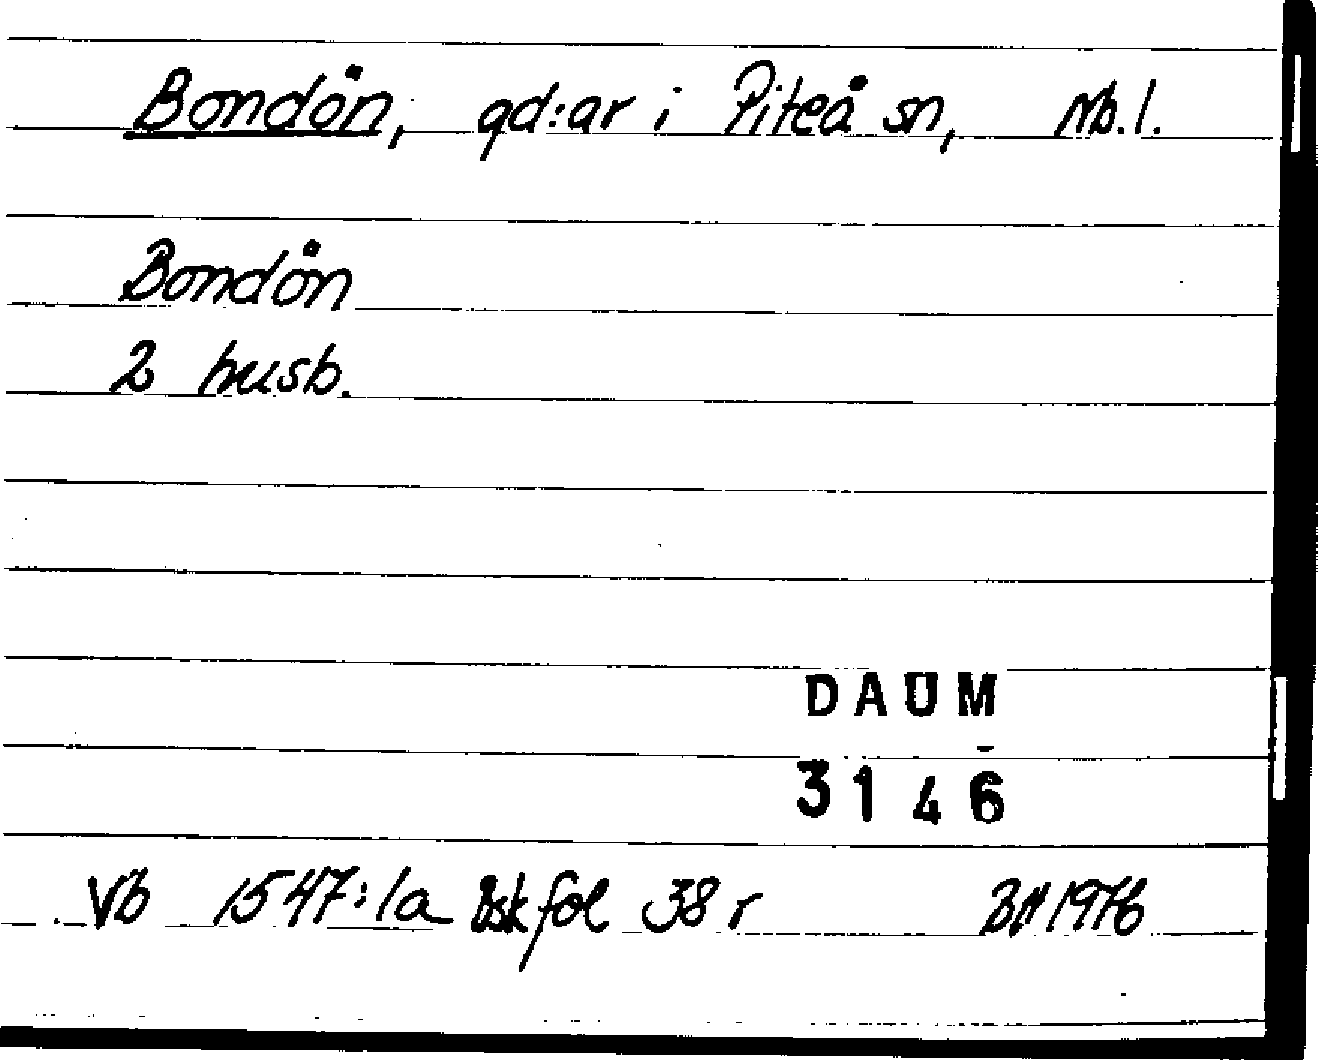 Bondön, gd:ar i Piteå sn, Nb.l.
Bondön
2 husb.
DAUM
3146
Vb 1547:1a Bsk fol 38 r BH 1976